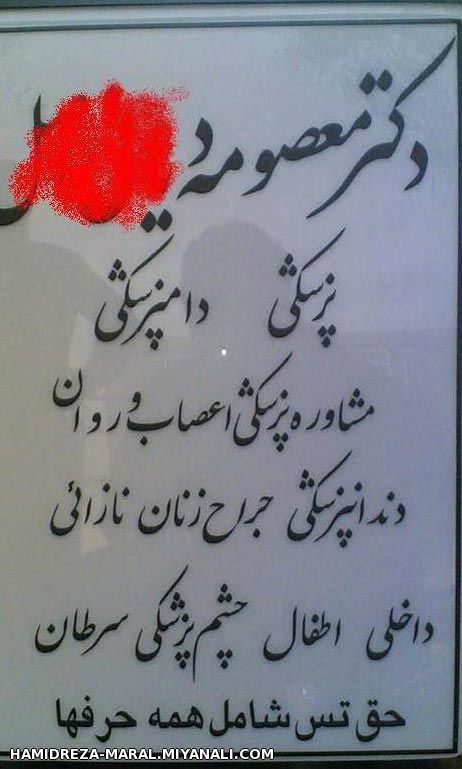 دکتر معصومه
پزشکی دامپزشکی
مشاوره پزشکی اعصاب و روان
دندانپزشکی جراح زنان نازائی
داخلی اطفال چشم پزشکی سرطان
حق تس شامل همه حرفها
HAMIDREZA-MARAL.MIYANALI.COM